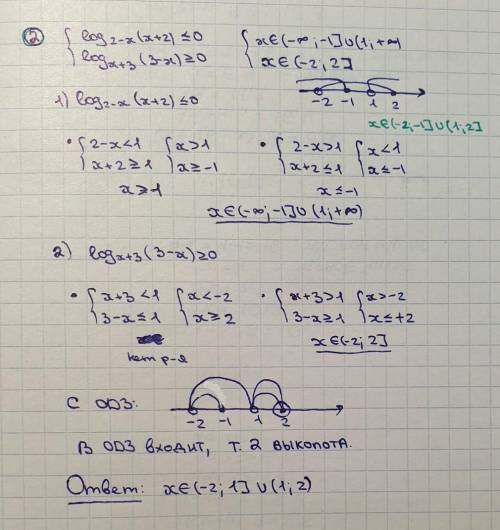 ② { log₂₋ₓ(x+2) ≤ 0 { x∈(-∞;-1]∪(1;+∞)
{ logₓ₊₃(3-x) ≥ 0 { x∈(-2;2]
-2 -1 1 2
1) log₂₋ₓ(x+2) ≤ 0
x∈(-2;-1]∪(1;2]
• { 2-x<1 { x>1 • { 2-x>1 { x<1
{ x+2≥1 { x≥-1 { x+2≤1 { x≤-1
x≥1 x≤-1
x∈(-∞;-1]∪(1;+∞)
2) logₓ₊₃(3-x) ≥ 0
• { x+3<1 { x<-2 • { x+3>1 { x>-2
{ 3-x≤1 { x≥2 { 3-x≥1 { x≤+2
нет р-я x∈(-2;2]
С ОДЗ:
-2 -1 1 2
В ОДЗ входит, т. 2 выколота.
Ответ: x∈(-2;1]∪(1;2)